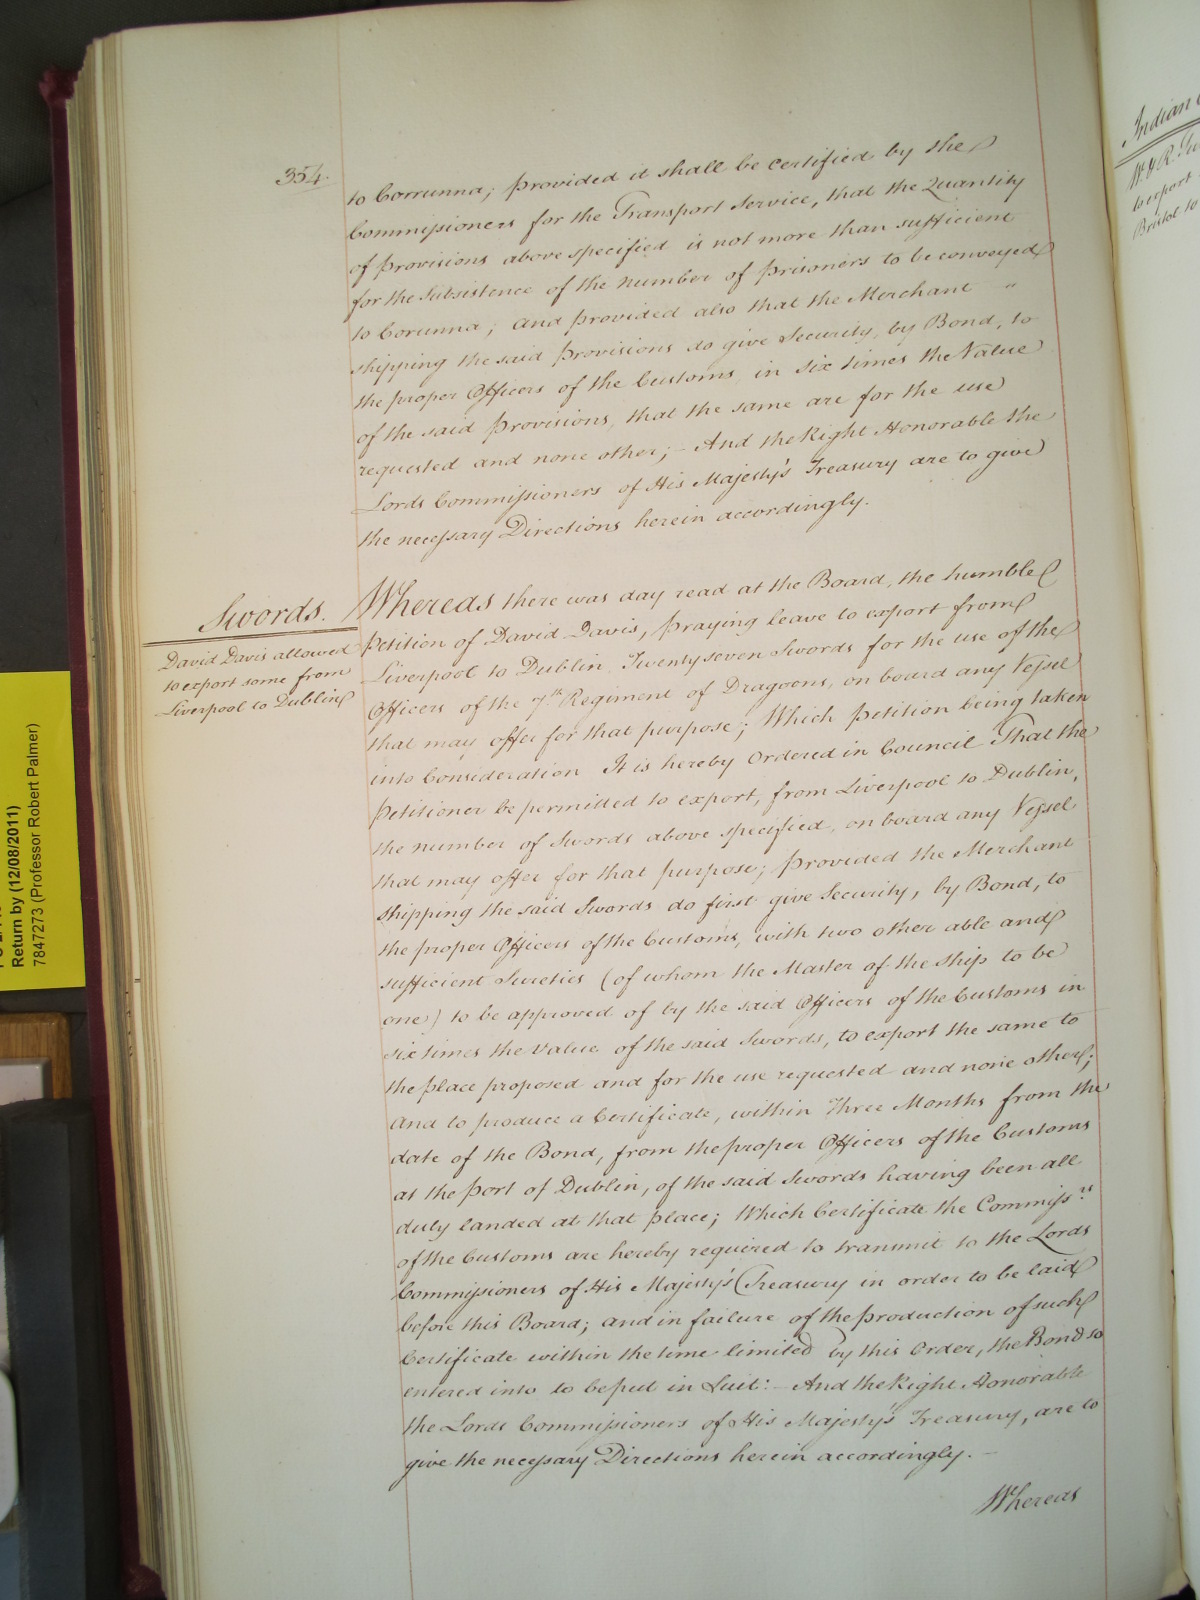 354.
to Corrunna; provided it shall be certified by the
Commissioners for the Transport Service, that the Quantity
of provisions above specified is not more than sufficient
for the Subsistence of the number of prisoners to be conveyed
to Corunna; and provided also that the Merchant "
shipping the said provisions do give Security, by Bond, to
the proper Officers of the Customs, in six times the Value
of the said provisions, that the same are for the use
requested and none other; - And the Right Honorable the
Lords Commissioners of His Majesty's Treasury are to give
the necessary Directions herein accordingly.
Swords.
David Davis allowed
to export some from
Liverpool to Dublin
Whereas there was day read at the Board, the humble
Petition of David Davis, praying leave to export from
Liverpool to Dublin Twenty seven Swords for the use of the
Officers of the 7th Regiment of Dragoons, on board any Vessel
that may offer for that purpose; Which petition being taken
into Consideration It is hereby Ordered in Council That the
Petitioner be permitted to export, from Liverpool to Dublin,
the number of Swords above specified, on board any Vessel
that may offer for that purpose; provided the Merchant
shipping the said Swords do first give Security, by Bond, to
the proper Officers of the Customs, with two other able and
sufficient Sureties (of whom the Master of the ship to be
one) to be approved of by the said Officers of the Customs in
six times the Value of the said Swords, to export the same to
the place proposed and for the use requested and none other;
and to produce a Certificate, within Three Months from the
date of the Bond, from the proper Officers of the Customs
at the Port of Dublin, of the said Swords having been all
duly landed at that place; Which Certificate the Commiss.rs
of the Customs are hereby required to transmit to the Lords
Commissioners of His Majesty's Treasury in order to be laid
before this Board; and in failure of the production of such
Certificate within the time limited by this Order, the Bond so
entered into to be put in Suit: - And the Right Honorable
the Lords Commissioners of His Majesty's Treasury, are to
give the necessary Directions herein accordingly. -
Whereas
Indian
W. & R.
to export
Bristol to
Return by (12/08/2011)
7847273 (Professor Robert Palmer)